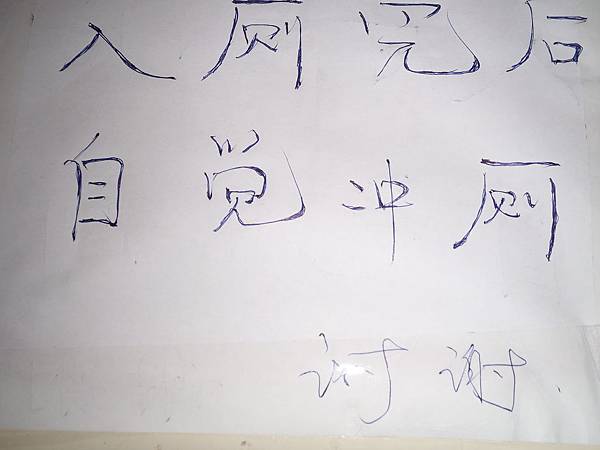 入厕完后
自觉冲厕
谢谢.